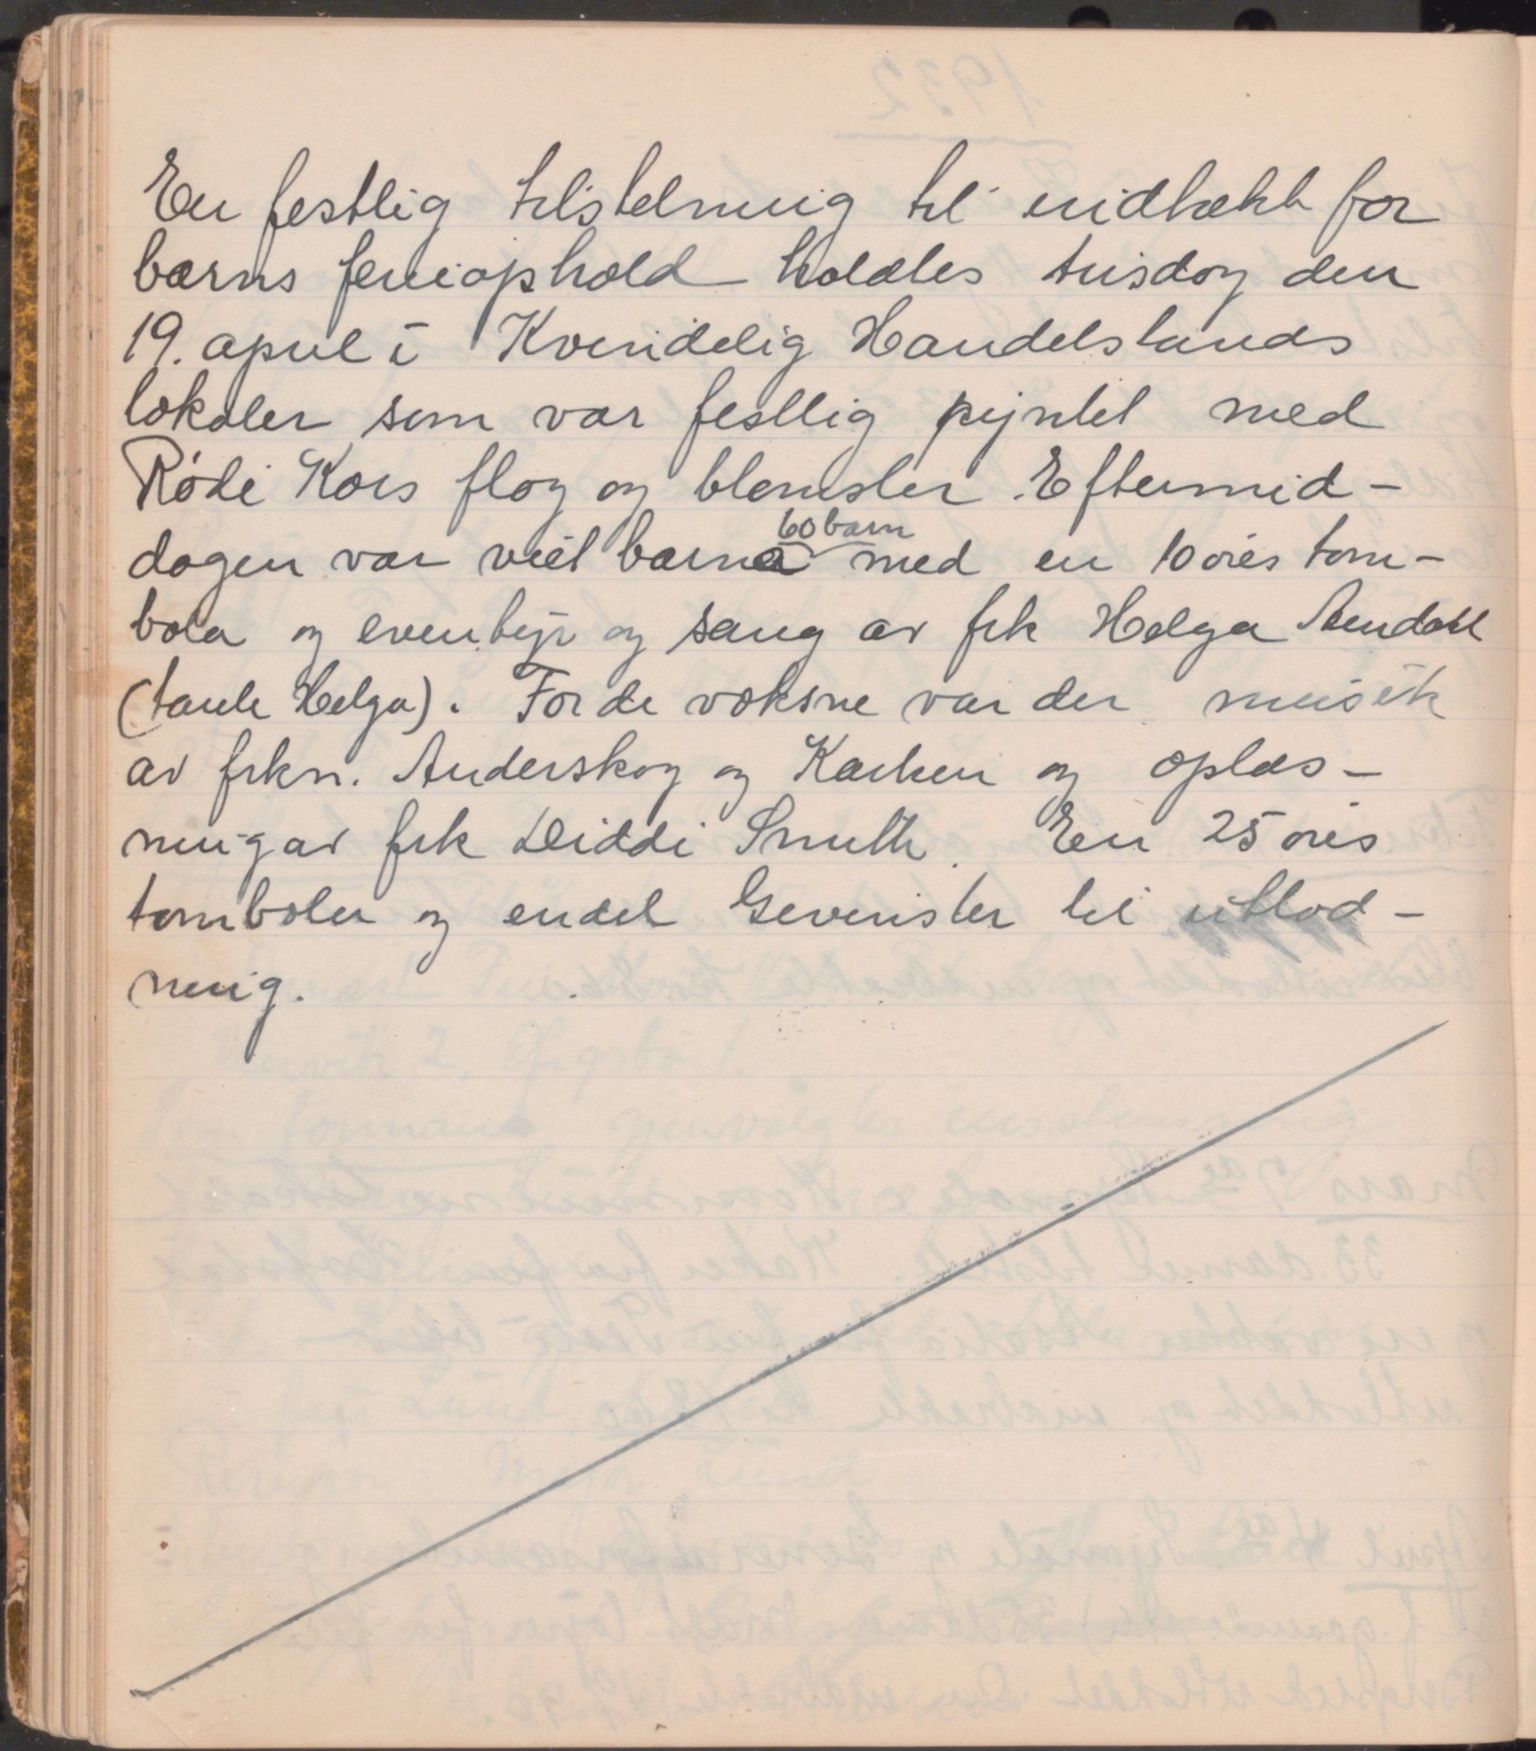 En festlig tilstelning til inidtækt for
barns ferieophold holdtes tirsdag den
19. april i Kvindelig Handelstands
lokaler som var festlig pyntet med
Røde Kors flag og blomster. Eftermid-
dagen var viet barna 60 barn med en 10 øres tom-
bola og eventyr og sang av frk Helga
(tante Helga). For de voksne var der musik
av frkn. Anderskog og Karken og oplæs-
ning av frk Diddi Smith. En 25 øres
tombola og endel Gevinster til utlod-
ning.